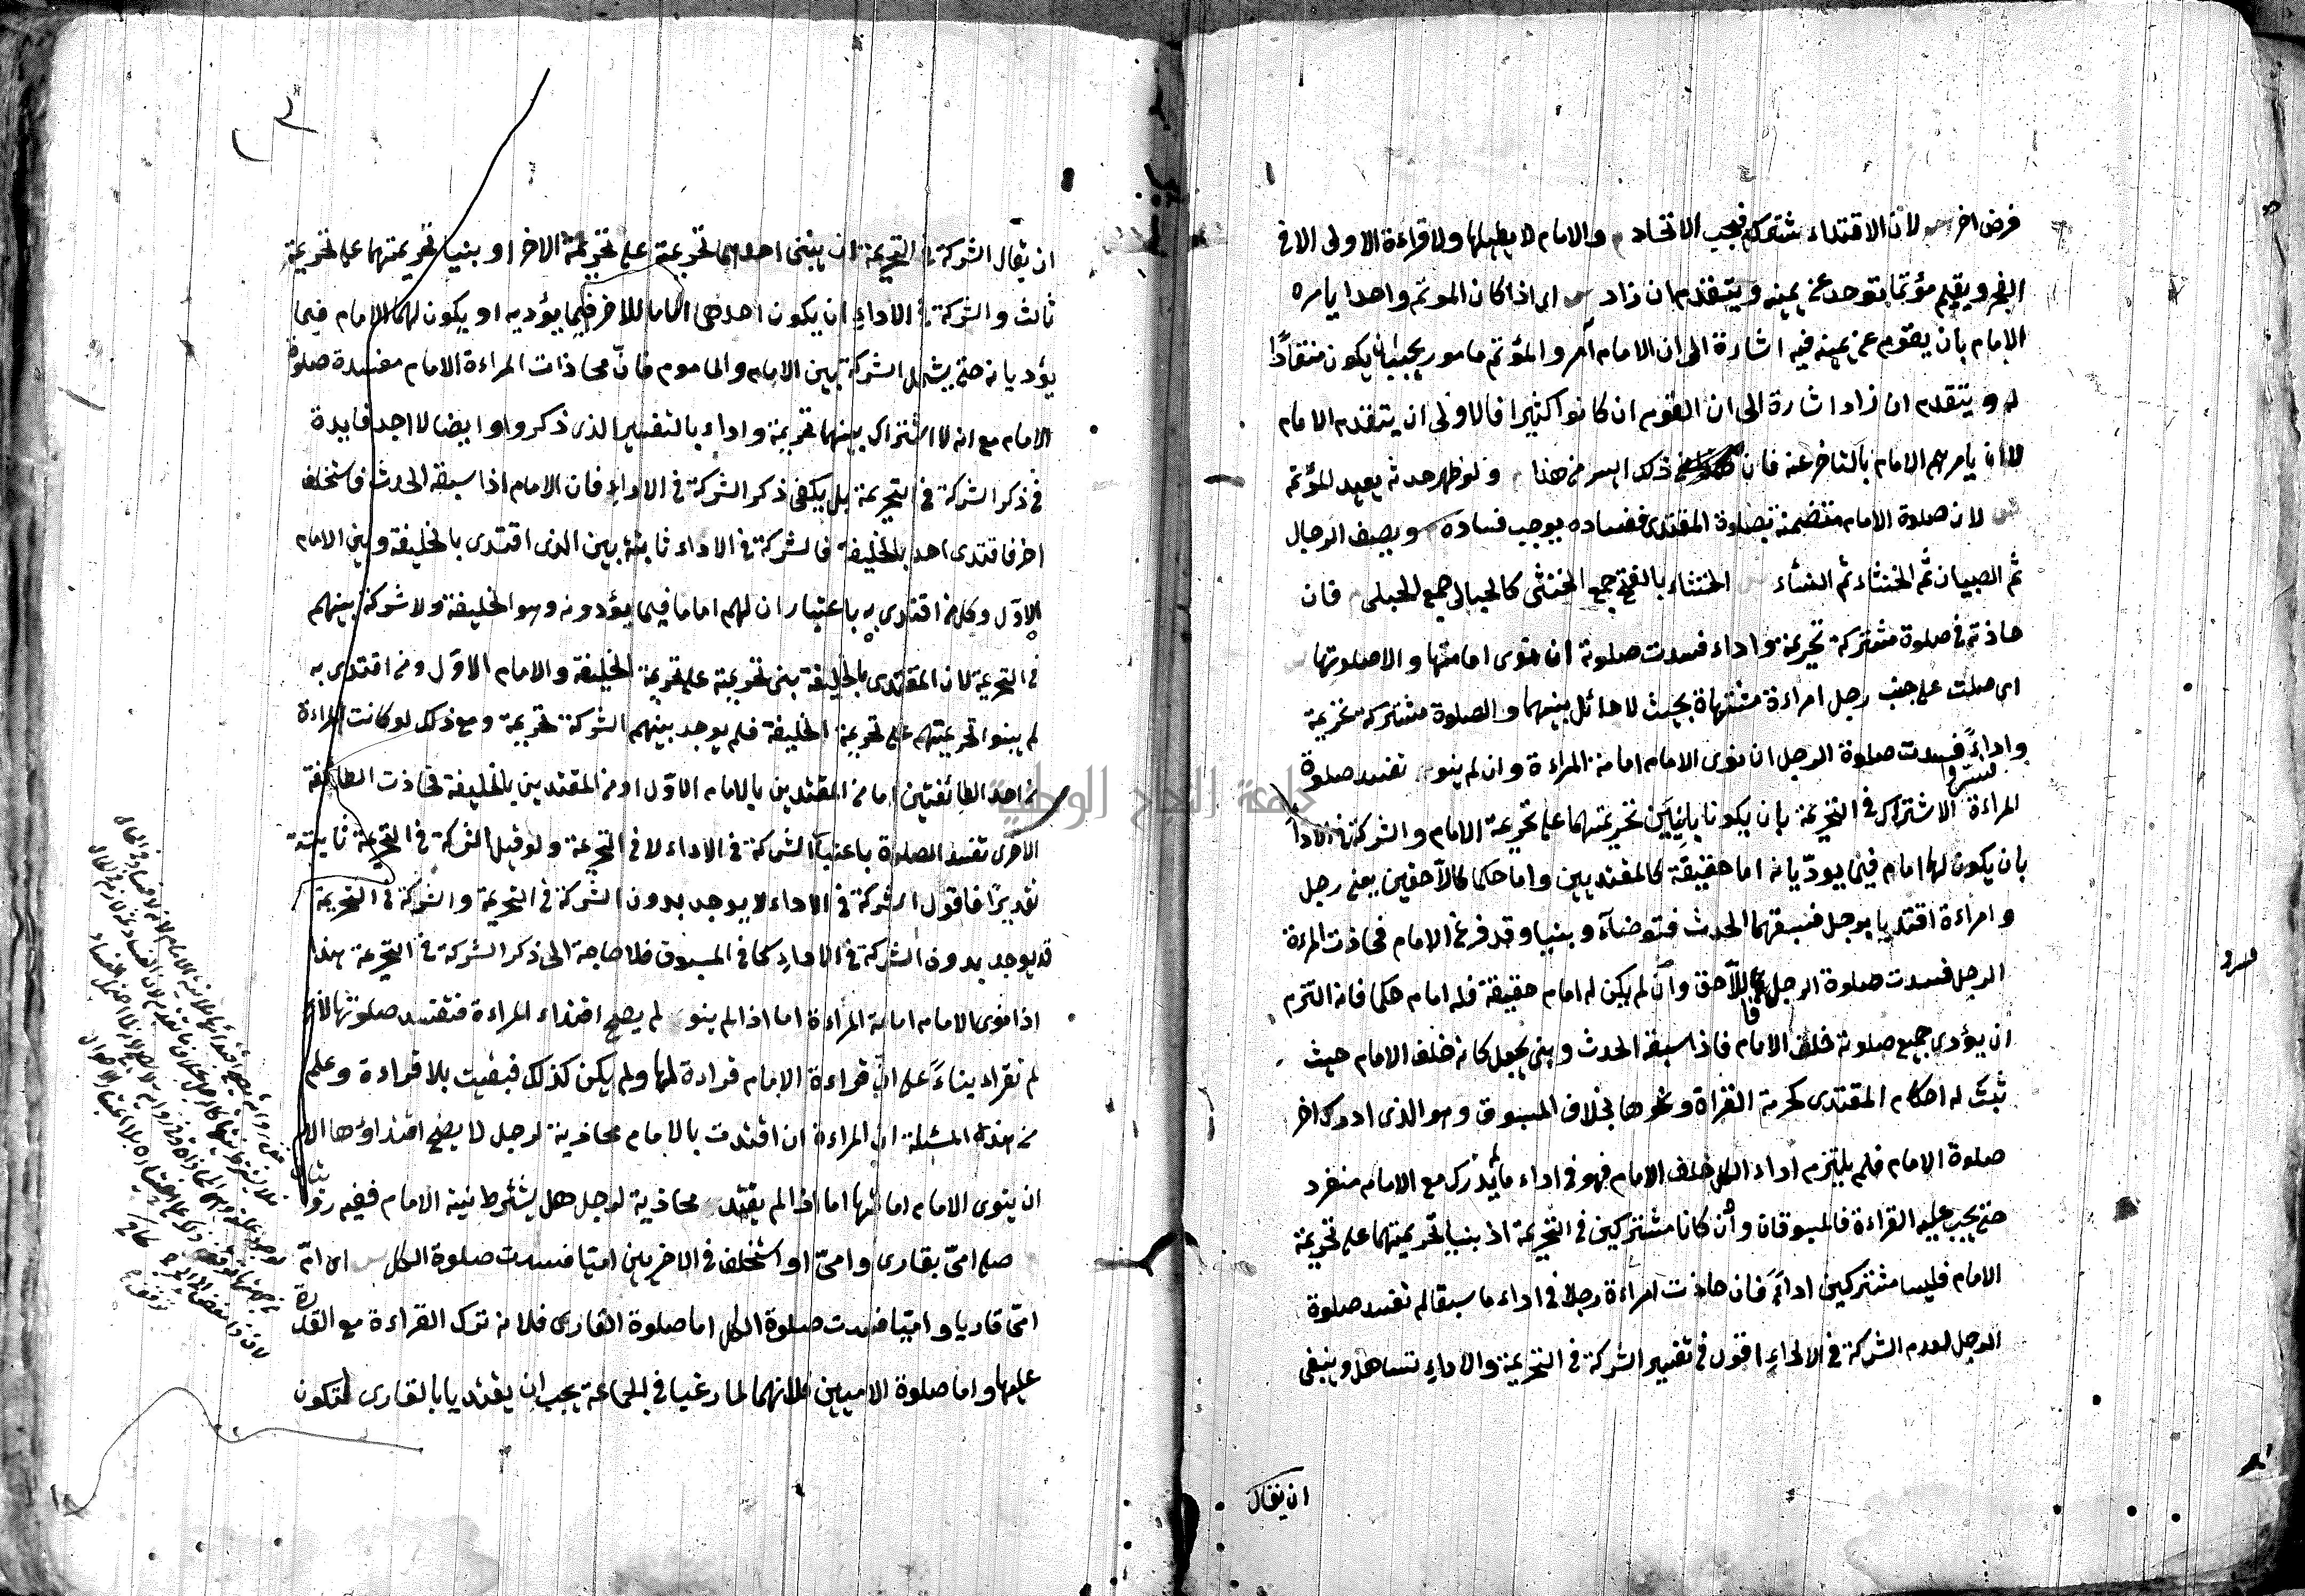 فرض اخر ش لان الاقتداء شركة فيجب الاتحاد م والامام لا يطيلها ولا قراءة الاولى الا في
الفجر ويقيم مؤتما توحد عن يمينه ويتقدم ان زاد ش اى اذا كان الموتم واحدا يامره
الامام بان يقوم عن يمينه فيه اشارة الى ان الامام آمر والمؤتم مامور يجب ان يكون منقادًا
له ويتقدم ان زاد اشارة الى ان القوم ان كانوا كثيرا فالاولى ان يتقدم الامام
لا ان يامرهم الامام بالتاخر عنه فان ذلك ايسر من هذا م ولو ظهر حدثه يعيد المؤتم
ش لان صلوة الامام متضمنة بصلوة المقتدى ففساده يوجب فساده م ويصف الرجال
ثم الصبيان ثم الخنثاء ثم النساء ش الخنثاء بالفتح جمع الخنثى كالحبالى جمع الحبلى م فان
حاذته في صلوة مشتركة تحريمة واداء فسدت صلوته ان نوى امامتها والا صلوتها ش
اى صلت على جنب رجل امراءة مشتهاة بحيث لا حائل بينهما والصلوة مشتركة تحريمة
واداءً فسدت صلوة الرجل ان نوى الامام امامة المراءة وان لم ينو تفسد صلوة
المراءة الاشتراك في التحريمة بان يكونا بانيين تحريمتهما على تحريمة الامام والشركة في الاداء
بان يكون لهما امام فيما يوديانه اما حقيقة كالمقتديين واما حكما كاللاحقين يعنى رجل
وامراءة اقتديا برجل فسبقهما الحدث فتوضآء وبنيا وقد فرغ الامام فحاذت المرءة
الرجل فسدت صلوة الرجل فاللاحق وان لم يكن له امام حقيقة فله امام حكما فانه التزم
ان يؤدى جميع صلوته خلف الامام فاذا سبقه الحدث وبنى يجعل كانه خلف الامام حيث
ثبت له احكام المقتدى كحرمة القراة ونحوها بخلاف المسبوق وهو الذى ادرك اخر
صلوة الامام فلم يلتزم اداء الكل خلف الامام فهو في اداء ما لم يدرك مع الامام منفرد
حتى يجب عليه القراءة فالمسبوقان وان كانا مشتركين في التحريمة اذ بنيا تحريمتهما على تحريمة
الامام فليسا مشتركين اداءً فان حاذت امراءة رجلا في اداء ما سبقا لم تفسد صلوة
الرجل لعدم الشركة في الاداء اقول في تفسير الشركة في التحريمة والاداء تساهل وينبغى
ان يقال
ان يقال الشركة في التحريمة ان يبنى احدهما تحريمة على تحريمة الاخر او بنيا تحريمتهما على تحريمة
ثالث والشركة في الاداء ان يكون احدهما اماما للاخر فيما يؤديه او يكون لهما الامام فيما
يؤديانه حتى يشمل الشركة بين الامام والماموم فان محاذات المراءة الامام مفسدة صلوة
الامام مع انه لا اشتراك بينهما تحريمة واداء بالتفسير الذى ذكروا وايضا لا اجد فايدة
في ذكر الشركة في التحريمة بل يكفى ذكر الشركة في الاداء فان الامام اذا سبقه الحدث فاستخلف
اخر فاقتدى احد بالخليفة فالشركة في الاداء ثابتة بين الذى اقتدى بالخليفة وبين الامام
الاول وكل من اقتدى به باعتبار ان لهم اماما فيما يؤدونه وهو الخليفة ولا شركة بينهم
في التحريمة لان المقتدى بالخليفة بنى تحريمته على تحريمة الخليفة والامام الاول ومن اقتدى به
لم يبنوا تحريمتهم على تحريمة الخليفة فلم يوجد بينهم الشركة تحريمة ومع ذلك لو كانت المراءة
من احد الطائفتين اما من المقتدين بالامام الاول او من المقتدين بالخليفة فحاذت الطائفة
الاخرى تفسد الصلوة باعتبار الشركة في الاداء لا في التحريمة ولو قيل الشركة في التحريمة ثابتة
تقديرًا فاقول الشركة في الاداء لا يوجد بدون الشركة في التحريمة والشركة في التحريمة
قد يوجد بدون الشركة في الاداء كما في المسبوق فلا حاجة الى ذكر الشركة في التحريمة هذا
اذا نوى الامام امامة المراءة اما اذا لم ينو لم يصح اقتداء المراءة فتفسد صلوتها لانها
لم تقراء بناءً على ان قراءة الامام قراءة لها ولم يكن كذلك فبقيت بلا قراءة وعلم
من هذه المسئلة ان المراءة ان اقتدت بالامام محاذية لرجل لا يصح اقتداؤها الا
ان ينوى الامام امامتها اما اذا لم يقتد محاذية لرجل هل يشترط نية الامام ففيه روايتان
صلى امىّ بقارى وامىّ او استخلف في الاخريين اميا فسدت صلوة الكل ش اى امّ
امىّ قاريا واميّا فسدت صلوة الكل اما صلوة القارى فلانه ترك القراءة مع القدرة
عليها واما صلوة الاميين فلانهما لما رغبا في الجماعة يجب ان يقتديا بالقارى لتكون